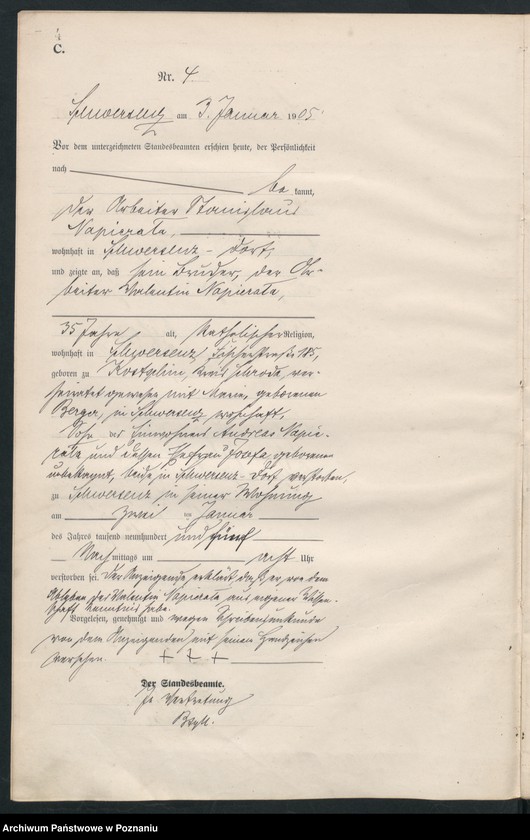 4
C.
Nr. 4.
Schwersenz am 3. Januar 1905.
Vor dem unterzeichneten Standesbeamten erschien heute, der Persönlichkeit
nach be kannt,
der Arbeiter Stanislaus
Napierala,
wohnhaft in Schwersenz - Dorf,
und zeigte an, daß sein Bruder, der Ar-
beiter Valentin Napierala,
35 Jahre alt, katholischer Religion,
wohnhaft in Schwersenz,
geboren zu Kreis Schroda, ver-
heiratet gewesen mit Maria, geborenen
Berger, in Schwersenz wohnhaft,
Sohn des Einwohners Andreas Napie-
rala und dessen Ehefrau Josefa, geborene
unbekannt, beide in Schwersenz-Dorf verstorben,
zu Schwersenz in seiner Wohnung
am zwei ten Januar
des Jahres tausend neunhundert und fünf
Nachmittags um acht Uhr
verstorben sei. Der Anzeigende erklärt, daß er von dem
Ableben des Valentin Napierala aus eigener Wissen-
schaft Kenntnis habe.
Vorgelesen, genehmigt und wegen Schreibensunkunde
von dem Anzeigenden mit seinem Handzeichen
versehen. + + +
Der Standesbeamte.
In Vertretung
Archiwum Państwowe w Poznaniu